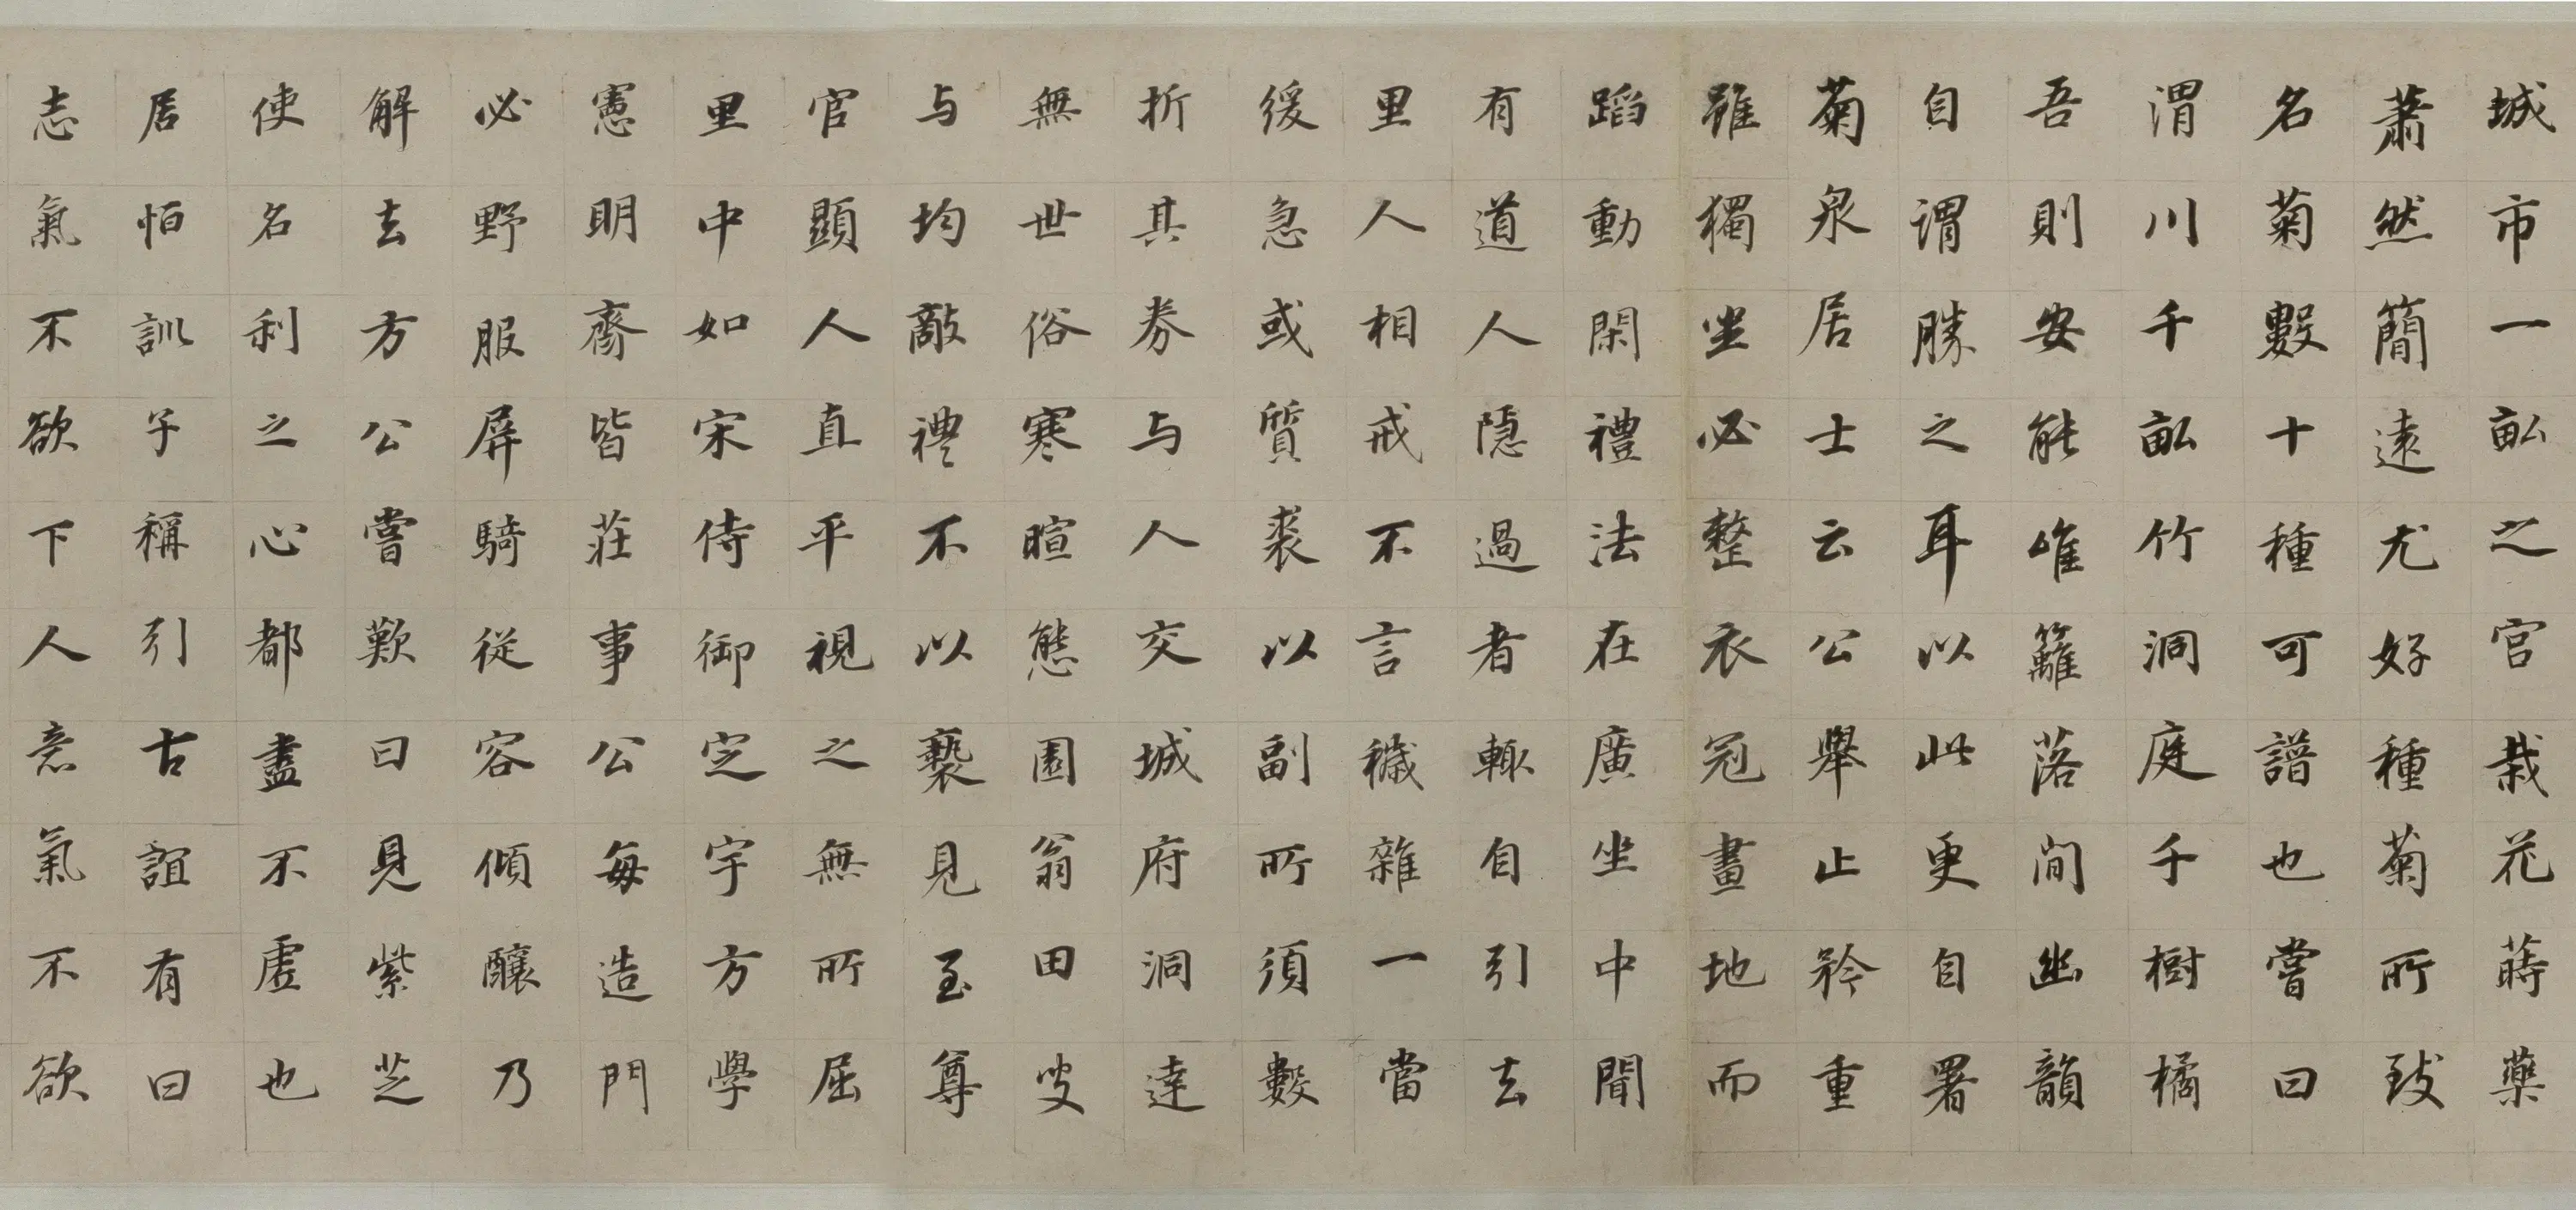 城市一畝之宮栽花蒔藥
蕭然簡遠尤好種菊所致
名菊數十種可譜也嘗曰
渭川千畝竹洞庭千樹橘
吾則安能唯籬落間幽韻
自謂勝之耳以此更自署
菊泉居士云公舉止矜重
雖獨坐必整衣冠畫地而
蹈動閑禮法在廣坐中聞
有道人隱過者輒自引去
里人相戒不言穢雜一當
緩急或質裘以副所須數
折其券与人交城府洞達
無世俗寒暄態園翁田叟
与均敵禮不以褻見至尊
官顯人直平視之無所屈
里中如宋侍御定宇方學
憲明齋皆莊事公每造門
必野服屏騎從容傾釀乃
解去方公嘗歎曰見紫芝
使名利之心都盡不虛也
居怕訓子稱引古誼有曰
志氣不欲下人意氣不欲